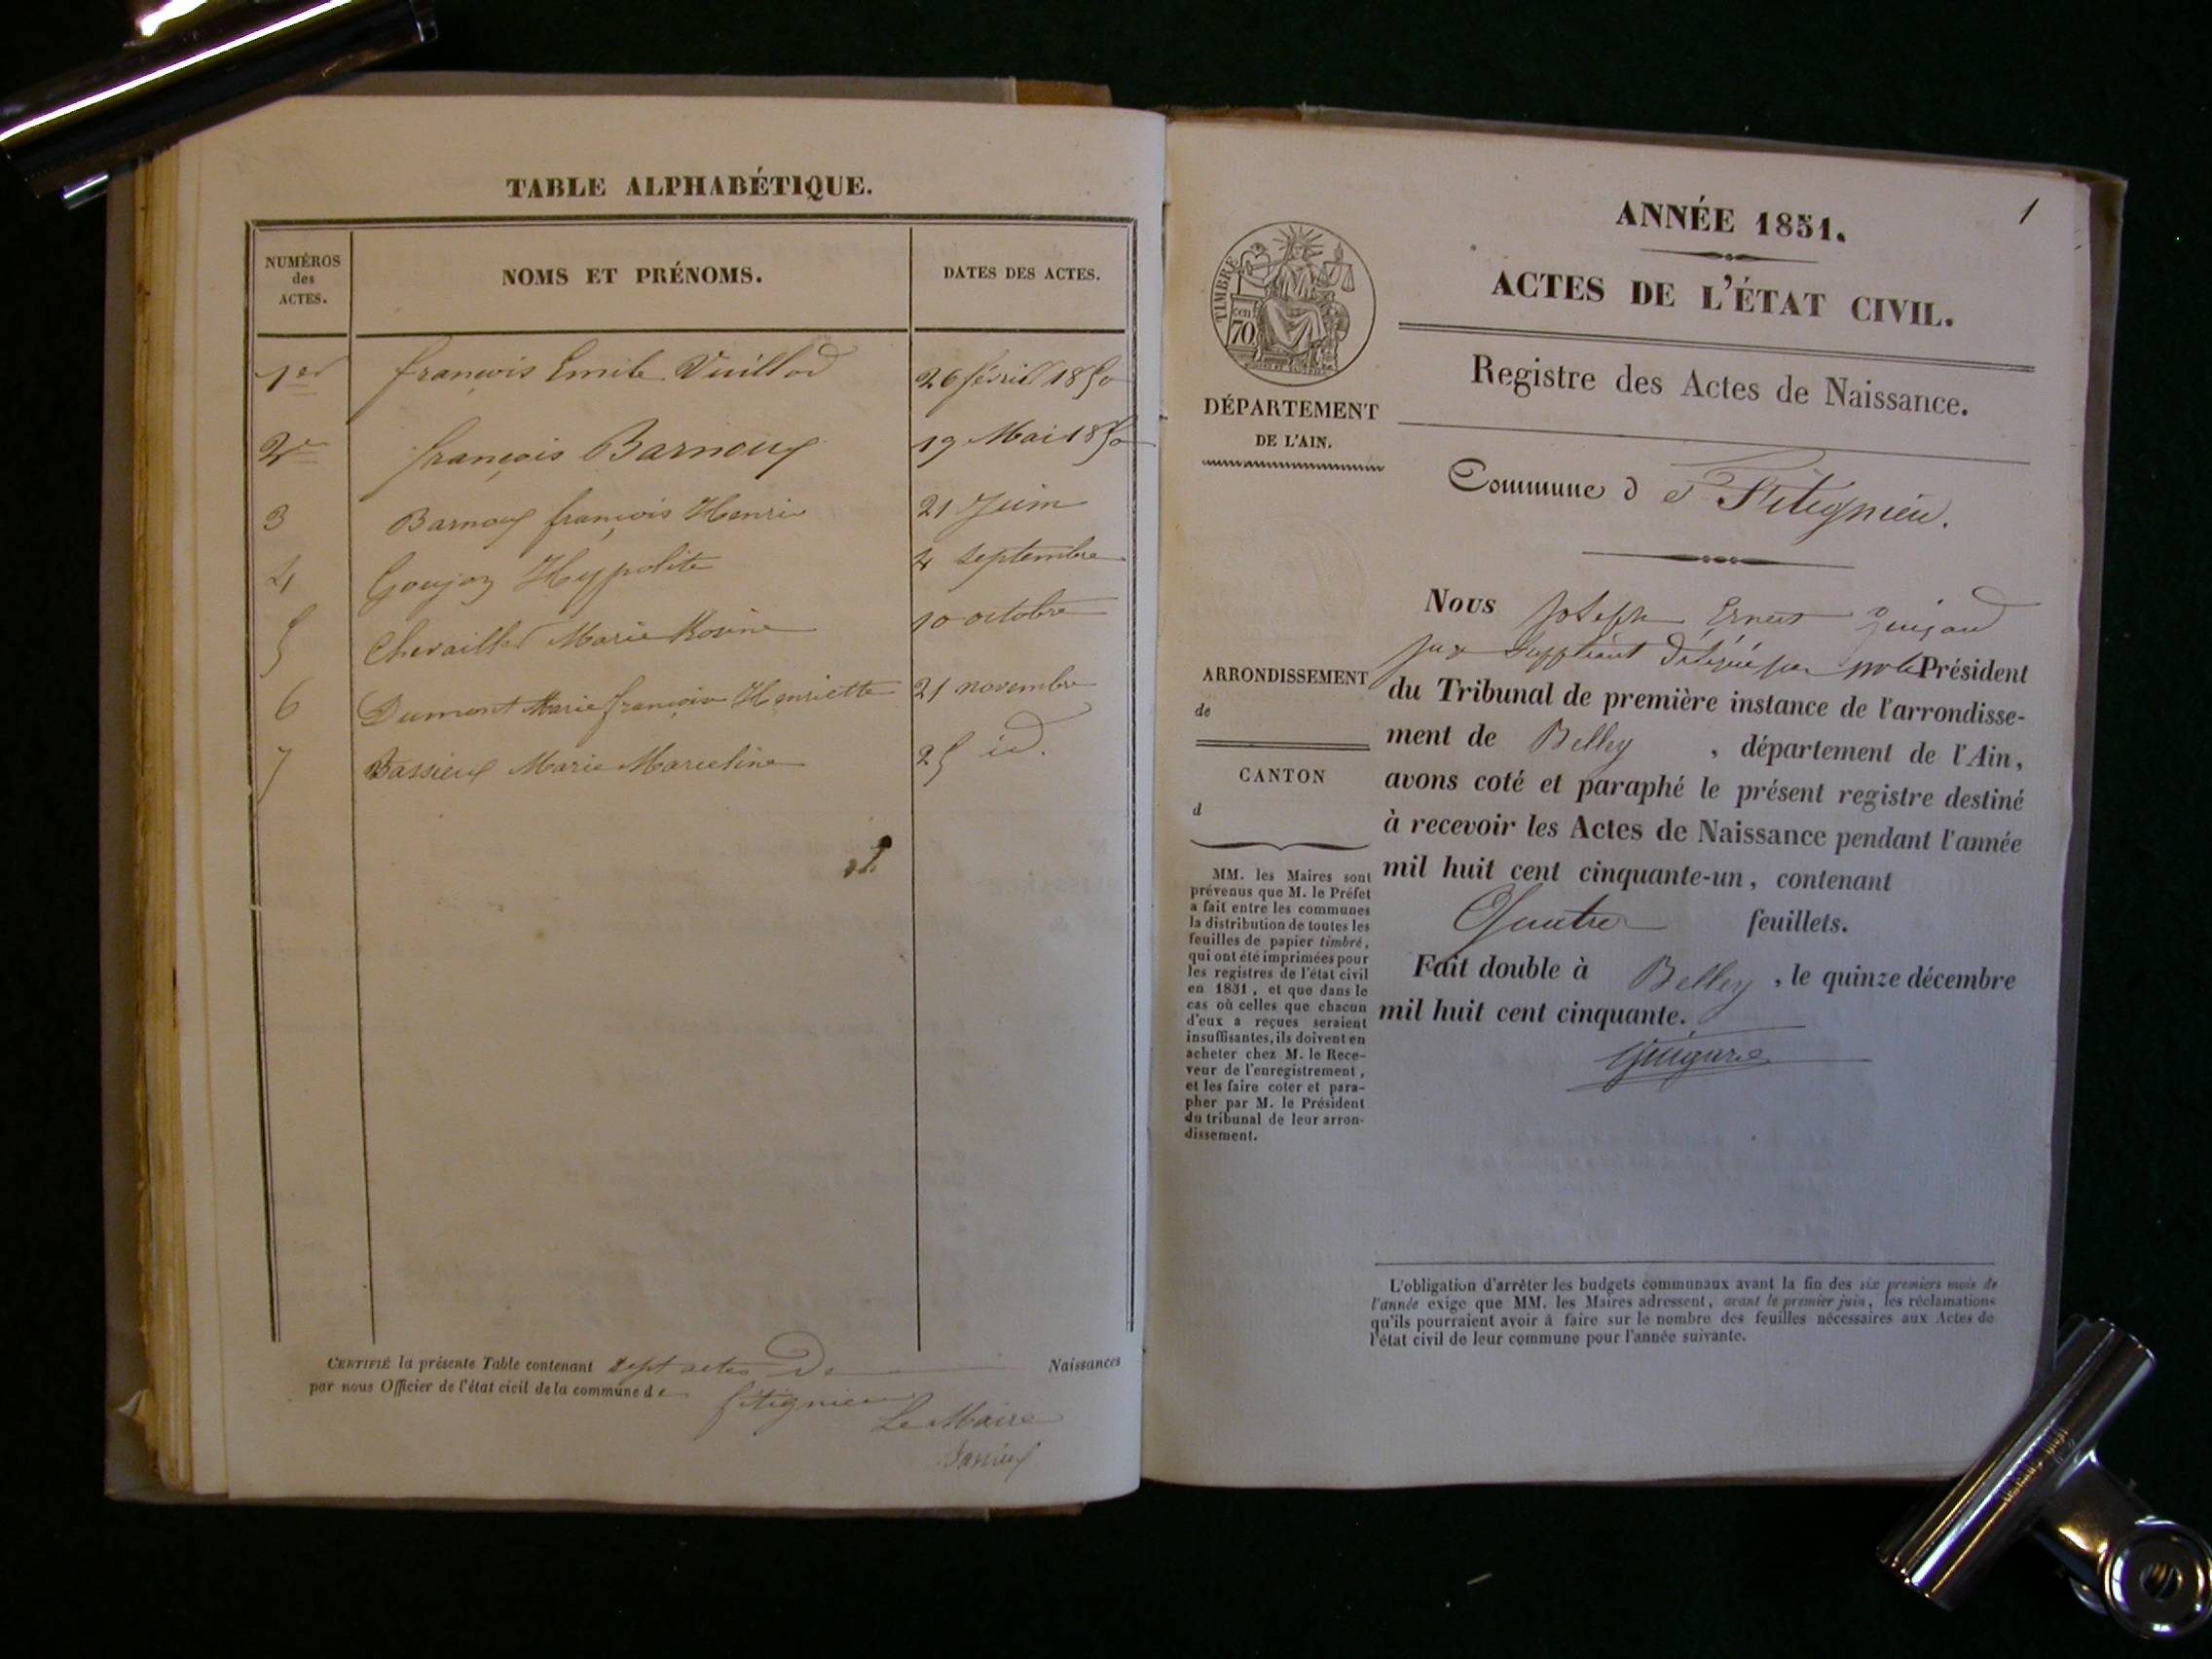 TABLE ALPHABÉTIQUE.
NUMÉROS
des
ACTES.
NOMS ET PRÉNOMS.
DATES DES ACTES.
1er françois Emile Vuillod 26 févriel 1850
2e françois Barnoux 19 Mai 1850
3 Barnoux françois Henri 21 Juin
4 Goujon Hyppolite 4 septembre
5 Chevaillet Marie Rosine 10 octobre
6 Dumont Marie françoise Henriette 21 novembre
7 Bassieux Marie Marceline 25 id.
CERTIFIÉ la présente Table contenant sept actes De Naissances
par nous Officier de l'état civil de la commune de fitignieu
Le Maire
1
ANNÉE 1851.
ACTES DE L'ÉTAT CIVIL.
Registre des Actes de Naissance.
TIMBRE
cen
70
DÉPARTEMENT
DE L'AIN.
Commune de Fitignieu.
ARRONDISSEMENT
de
CANTON
d
MM. les Maires sont
prévenus que M. le Préfet
a fait entre les communes
la distribution de toutes les
feuilles de papier timbré,
qui ont été imprimées pour
les registres de l'état civil
en 1851, et que dans le
cas où celles que chacun
d'eux a reçues seraient
insuffisantes, ils doivent en
acheter chez M. le Rece-
veur de l'enregistrement,
et les faire coter et para-
pher par M. le Président
du tribunal de leur arron-
dissement.
Nous Joseph Ernest
juge Suppléant délégué par Président
du Tribunal de première instance de l'arrondisse-
ment de Belley , département de l'Ain,
avons coté et paraphé le présent registre destiné
à recevoir les Actes de Naissance pendant l'année
mil huit cent cinquante-un, contenant
Quatre feuillets.
Fait double à Belley , le quinze décembre
mil huit cent cinquante.
L'obligation d'arrêter les budgets communaux avant la fin des six premiers mois de
l'année exige que MM. les Maires adressent, avant le premier juin, les réclamations
qu'ils pourraient avoir à faire sur le nombre des feuilles nécessaires aux Actes de
l'état civil de leur commune pour l'année suivante.